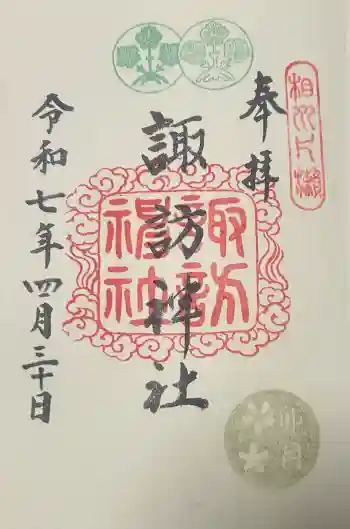 相州片瀬
奉拝
諏訪神社
諏訪神社
令和七年四月三十日